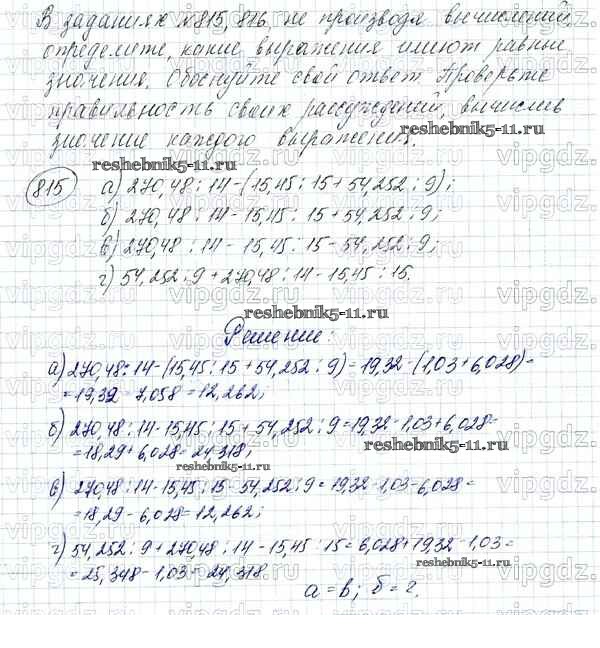 В заданиях №815, 816, не производя вычислений,
определите, какие выражения имеют равные
значения. Обоснуйте свой ответ. Проверьте
правильность своих рассуждений, вычислив
значение каждого выражения.
reshebnik5-11.ru
reshebnik5-11.ru
815 а) 270,48 : 14 - (15,45 : 15 + 54,252 : 9);
б) 270,48 : 14 - 15,45 : 15 + 54,252 : 9;
в) 270,48 : 14 - 15,45 : 15 - 54,252 : 9;
г) 54,252 : 9 + 270,48 : 14 - 15,45 : 15.
reshebnik5-11.ru
Решение:
а) 270,48 : 14 - (15,45 : 15 + 54,252 : 9) = 19,32 - (1,03 + 6,028) =
= 19,32 - 7,058 = 12,262;
б) 270,48 : 14 - 15,45 : 15 + 54,252 : 9 = 19,32 - 1,03 + 6,028 =
= 18,29 + 6,028 = 24,318;
reshebnik5-11.ru
reshebnik5-11.ru
в) 270,48 : 14 - 15,45 : 15 - 54,252 : 9 = 19,32 - 1,03 - 6,028 =
= 18,29 - 6,028 = 12,262;
г) 54,252 : 9 + 270,48 : 14 - 15,45 : 15 = 6,028 + 19,32 - 1,03 =
= 25,348 - 1,03 = 24,318.
а = в; б = г.